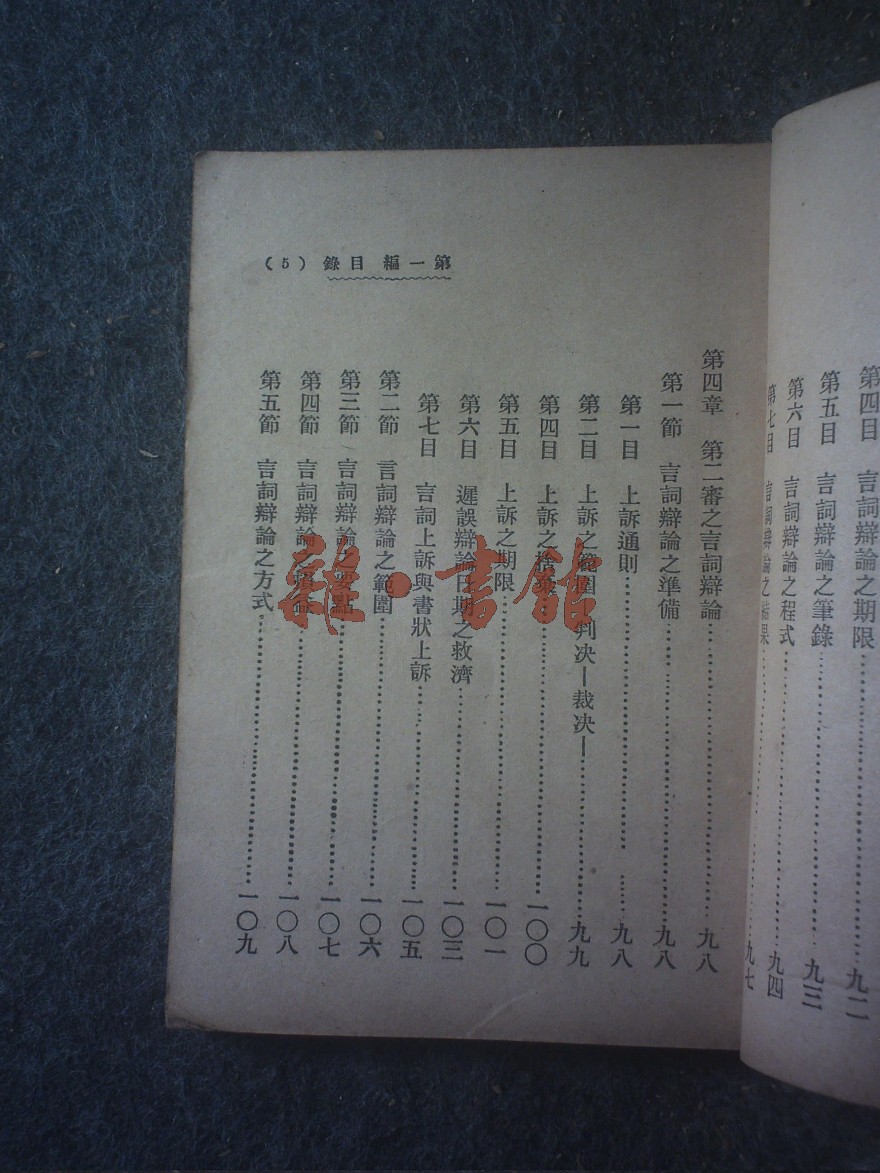 第四目　言詞辯論之期限………九二
第五目　言詞辯論之筆錄………九三
第六目　言詞辯論之程式………九四
第七目　言詞辯論之結果………九七
第一編　目錄（5）
第四章　第二審之言詞辯論………九八
第一節　言詞辯論之準備………九八
第一目　上訴通則………九八
第二目　上訴之範圍　判决—裁决—………九九
第四目　上訴之捨棄………一〇〇
第五目　上訴之期限………一〇一
第六目　遲誤辯論日期之救濟………一〇三
第七目　言詞上訴與書狀上訴………一〇五
第二節　言詞辯論之範圍………一〇六
第三節　言詞辯論之要點………一〇七
第四節　言詞辯論之………一〇八
第五節　言詞辯論之方式………一〇九
雜·書館